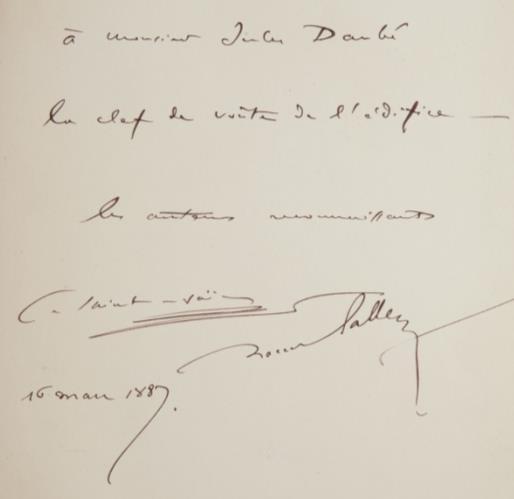 à monsieur Jules Danbé
la clef de voûte de l'édifice —
les auteurs reconnaissants
C. Saint-Saëns
Gallet
16 mars 1887.